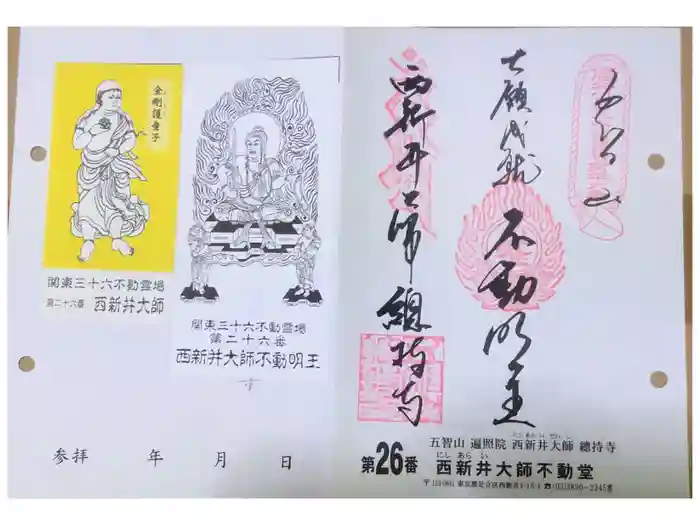 金剛護童子
関東三十六不動霊場
第二十六番 西新井大師
関東三十六不動霊場
第二十六番
西新井大師不動明王
参拝 年 月 日
五智山
大願成就
不動明王
西新井大師總持寺
五智山 遍照院 西新井大師 總持寺
にし あら い だい し
にし あら い
第26番 西新井大師不動堂